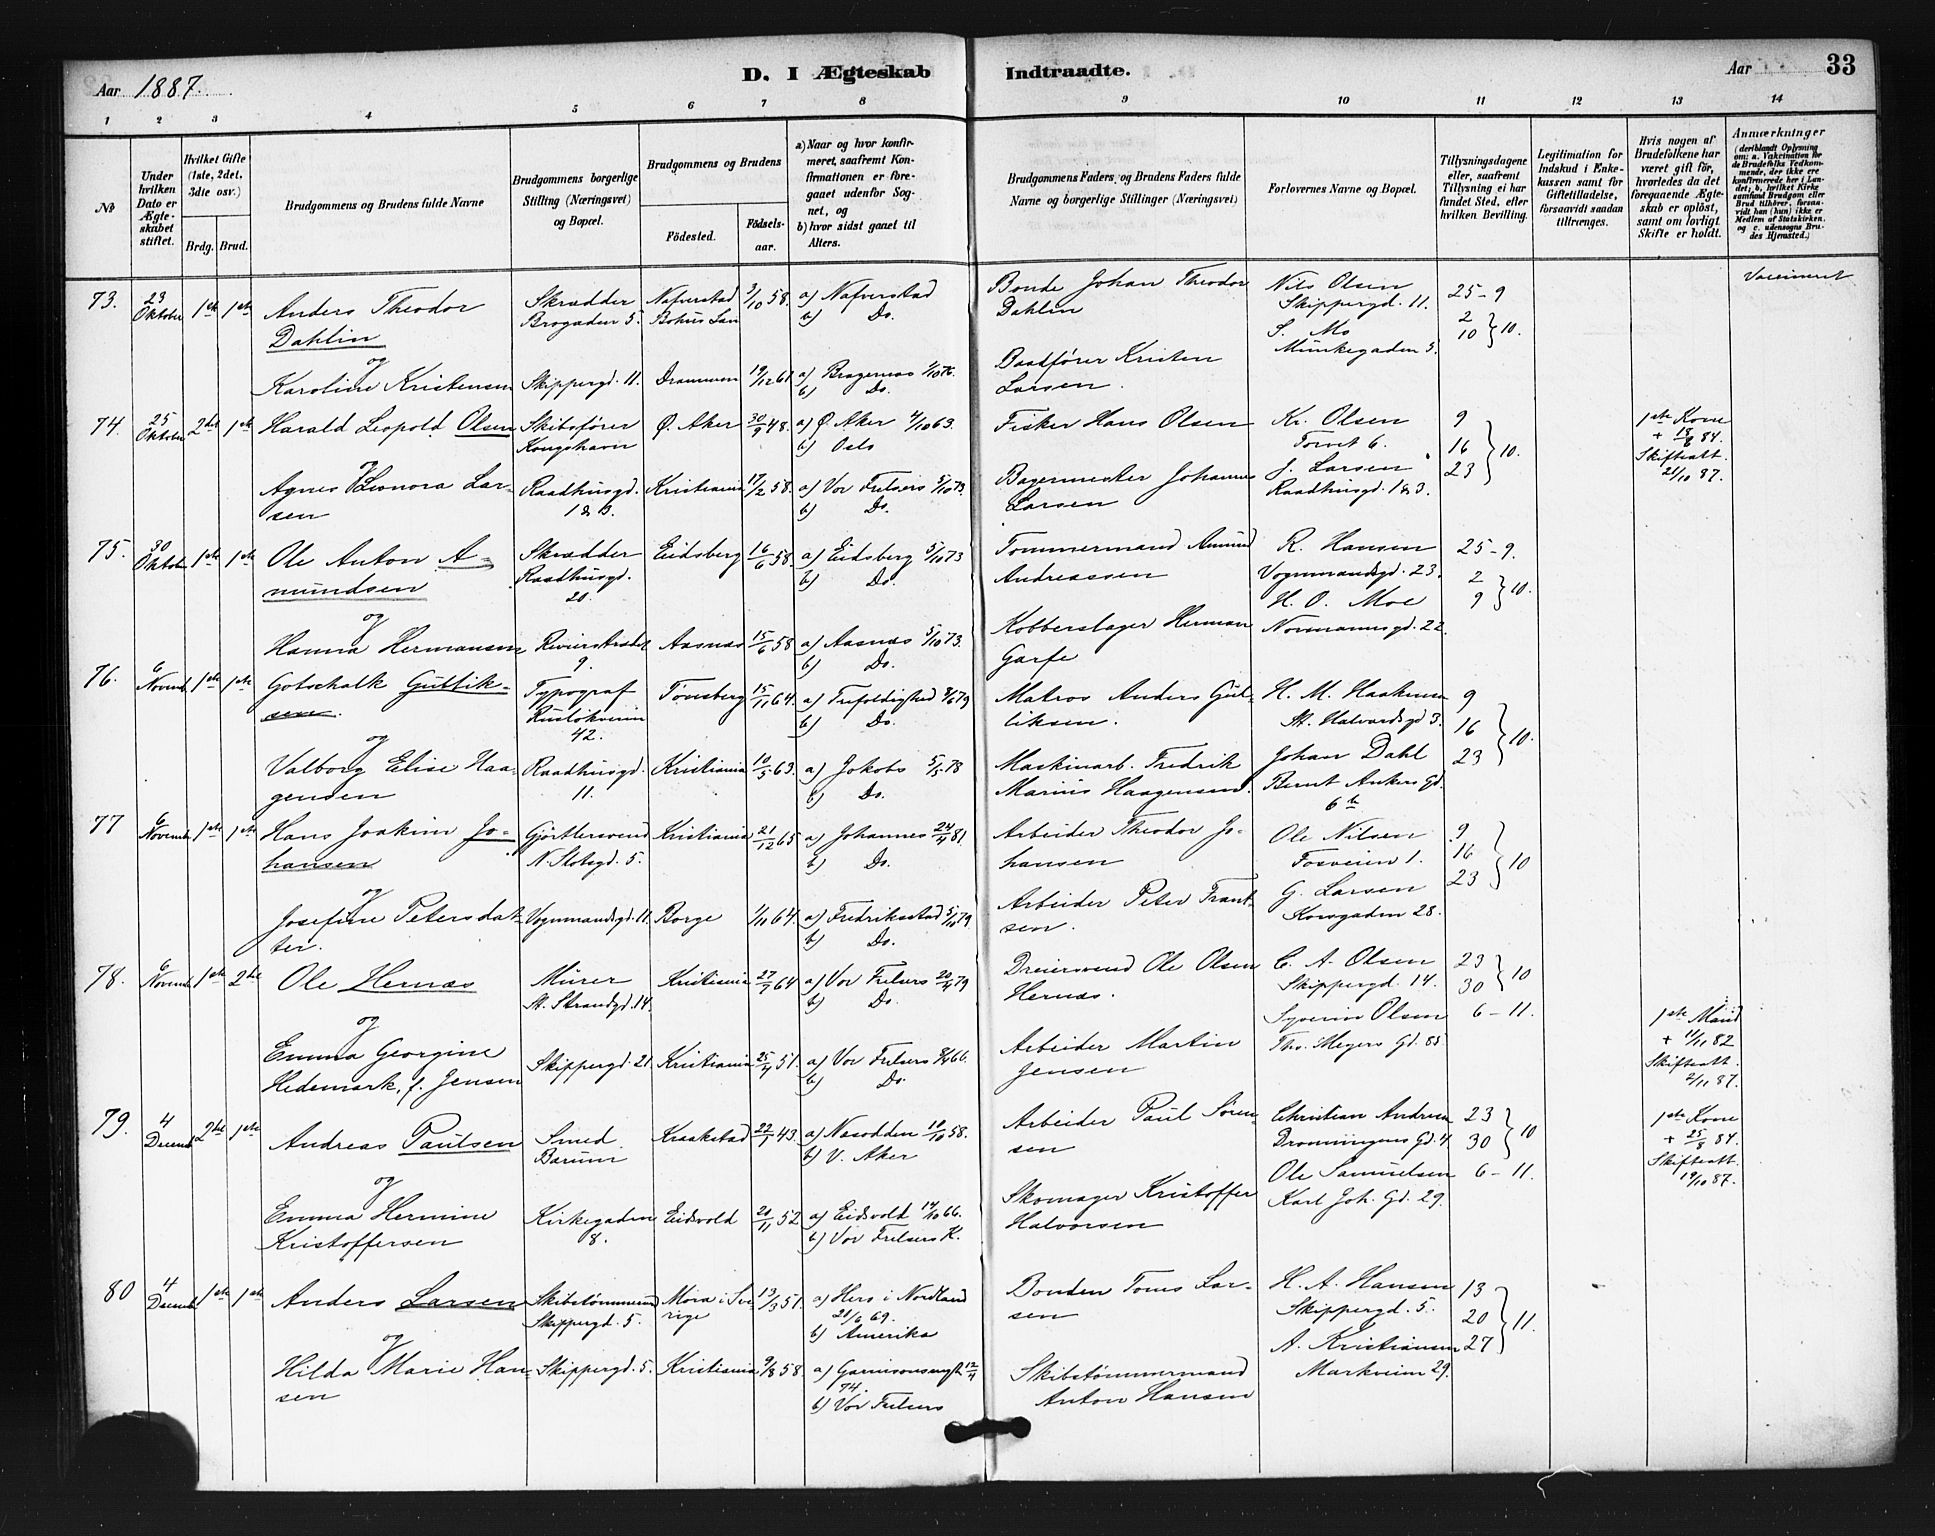 Aar 1887. D. I Ægteskab Indtraadte. Aar 33
1 2 3 4 5 6 7 8 9 10 11 12 13 14
No
Under hvilken Dato er Ægteskabet stiftet.
Hvilket Gifte (1ste, 2det, 3die osv.)
Brdg. Brud.
Brudgommens og Brudens fulde Navne
Brudgommens borgerlige Stilling (Næringsvei) og Bopæl.
Brudgommens og Brudens
Fødested. Fødselsaar.
a) Naar og hvor konfirmeret, saafremt Konfirmationen er foregaaet udenfor Sognet, og
b) hvor sidst gaaet til Alters.
Brudgommens Faders og Brudens Faders fulde Navne og borgerlige Stillinger (Næringsvei)
Forlovernes Navne og Bopæl.
Tillysningsdagene eller, saafremt Tillysning ei har fundet Sted, efter hvilken Bevilling.
Legitimation for Indskud i Enkekassen samt for Giftetilladelse, forsaavidt saadan tiltrænges.
Hvis nogen af Brudefolkene har været gift før, hvorledes da det foregaaende Ægteskab er opløst, samt om lovligt Skifte er holdt.
Anmærkninger (deriblandt Oplysning om: a. Vakcination for de Brudefolks Vedkommende, der ikke ere konfirmerede her i Landet; b. hvilket Kirkesamfund Brudgom eller Brud tilhører, forsaavidt han (hun) ikke er Medlem af Statskirken, og c. udensogns Brudes Hjemsted.)
73. 23 Oktober 1ste 1ste Anders Theodor Dahlin Skrædder Brogaden 5. Nafverstad Bohus Län 3/10 58. a) Nafverstad b) Do. Bonde Johan Theodor Dahlin Nils Olsen Skippergd. 11. S. Mo Munkegaden 5. 25-9 2 10 } 10. Vaccineret
og
Karoline Kristensen Skippergd. 11. Drammen 19/12 61 a) Bragernes 1/10 76. b) Do. Baadfører Kristen Larsen.
74. 25 Oktober 2det 1ste Harald Leopold Olsen Skibsfører Kongshavn Ø. Aker 30/9 48. a) Ø. Aker 4/10 63. b) Oslo Fisker Hans Olsen Kr. Olsen Torvet 6. J. Larsen Raadhusgd. 1&3. 9 16 23 } 10. 1ste Kone + 18/6 84. Skifteatt. 21/10 87.
og
Agnes Eleonora Larsen Raadhusgd. 1&3. Kristiania 17/2 58. a) Vor Frelsers 5/10 73. b) Do. Bagermester Johannes Larsen
75. 30 Oktob. 1ste 1ste Ole Anton Amundsen Skrædder Raadhusgd. 20. Eidsberg 16/6 58. a) Eidsberg 5/10 73 b) Do. Tømmermand Amund Andreassen R. Hansen Vognmandsgd. 23. H. O. Moe Normannsgd. 22. 25-9. 2 9 } 10.
og
Hanna Hermansen Revierstrædet 9. Aasnæs 15/6 58 a) Aasnæs 5/10 73. b) Do. Kobberslager Herman Garfe
76. 6 Novemb. 1ste 1ste Gotschalk Gulliksen. Typograf Ruseløkveien 42. Tønsberg 15/11 64. a) Trefoldighed 8/6 79 b) Do. Matros Anders Gulliksen. H. M. Haakensen St. Halvardsgd 3. Johan Dahl Bernt Ankers Gd. 6 b 9 16 23 } 10.
og
Valborg Elise Haagensen Raadhusgd. 11. Kristiania 10/5 63. a) Jakobs 5/5 78 b) Do. Maskinarb. Fredrik Marius Haagensen.
77 6 Novemb. 1ste 1ste Hans Joakim Johansen Gjørtlersvend N. Slotsgd. 5. Kristiania 21/12 65 a) Johannes 24/4 81. b) Do. Arbeider Theodor Johansen Ole Nilsen Fosveien 1. G. Larsen Korsgaden 28. 9 16 23 } 10
og
Josefine Petersdatter. Vognmandsgd. 11. Borge 1/11 64. a) Fredriksstad 5/10 79 b) Do. Arbeider Peter Frantsen.
78. 6 Novemb. 1ste 2det Ole Hernæs Murer St. Strandgd. 14. Kristiania 27/7 64 a) Vor Frelsers 20/4 79 b) Do. Dreiersvend Ole Olsen Hernæs. C. A. Olsen Skippergd. 14. Syverin Olsen Ths. Meyers Gd. 85. 23 30 } 10 6-11.
og
Emma Georgine Hedemark, f. Jensen Skippergd. 21. Kristiania 25/4 51. a) Vor Frelsers 8/4 66. b) Do. Arbeider Martin Jensen 1ste Mand + 11/11 82 Skifteatt. 2/11 87.
79. 4 Decemb. 2det 1ste Andreas Paulsen Smed Bærum Kraakstad 22/1 43. a) Næsodden 10/10 58. b) V. Aker Arbeider Paul Sørensen Christian Andresen Dronningens Gd. 4. Ole Samuelsen Karl Joh. Gd. 29. 23 30 } 10 6-11. 1ste Kone + 25/8 84. Skifteatt. 19/10 87.
og
Emma Hermine Kristoffersen Kirkegaden 8. Eidsvold 20/11 52 a) Eidsvold 14/10 66. b) Vor Frelsers K. Skomager Kristoffer Halvorsen
80 4 Decemb. 1ste 1ste Anders Larsen Skibstømmermd. Skippergd. 5. Mora i Sverige 13/3 51. a) Hers i Nordland 21/6 69. b) Amerika Bonden Toms Larsen H. A. Hansen Skippergd. 5. A. Kristiansen Markveien 29. 13 20 27 } 11.
og
Hilda Marie Hansen Skippergd. 5. Kristiania 9/8 58. a) Garnisonsmgh 12/4 74. b) Vor Frelsers Skibstømmermand Anton Hansen